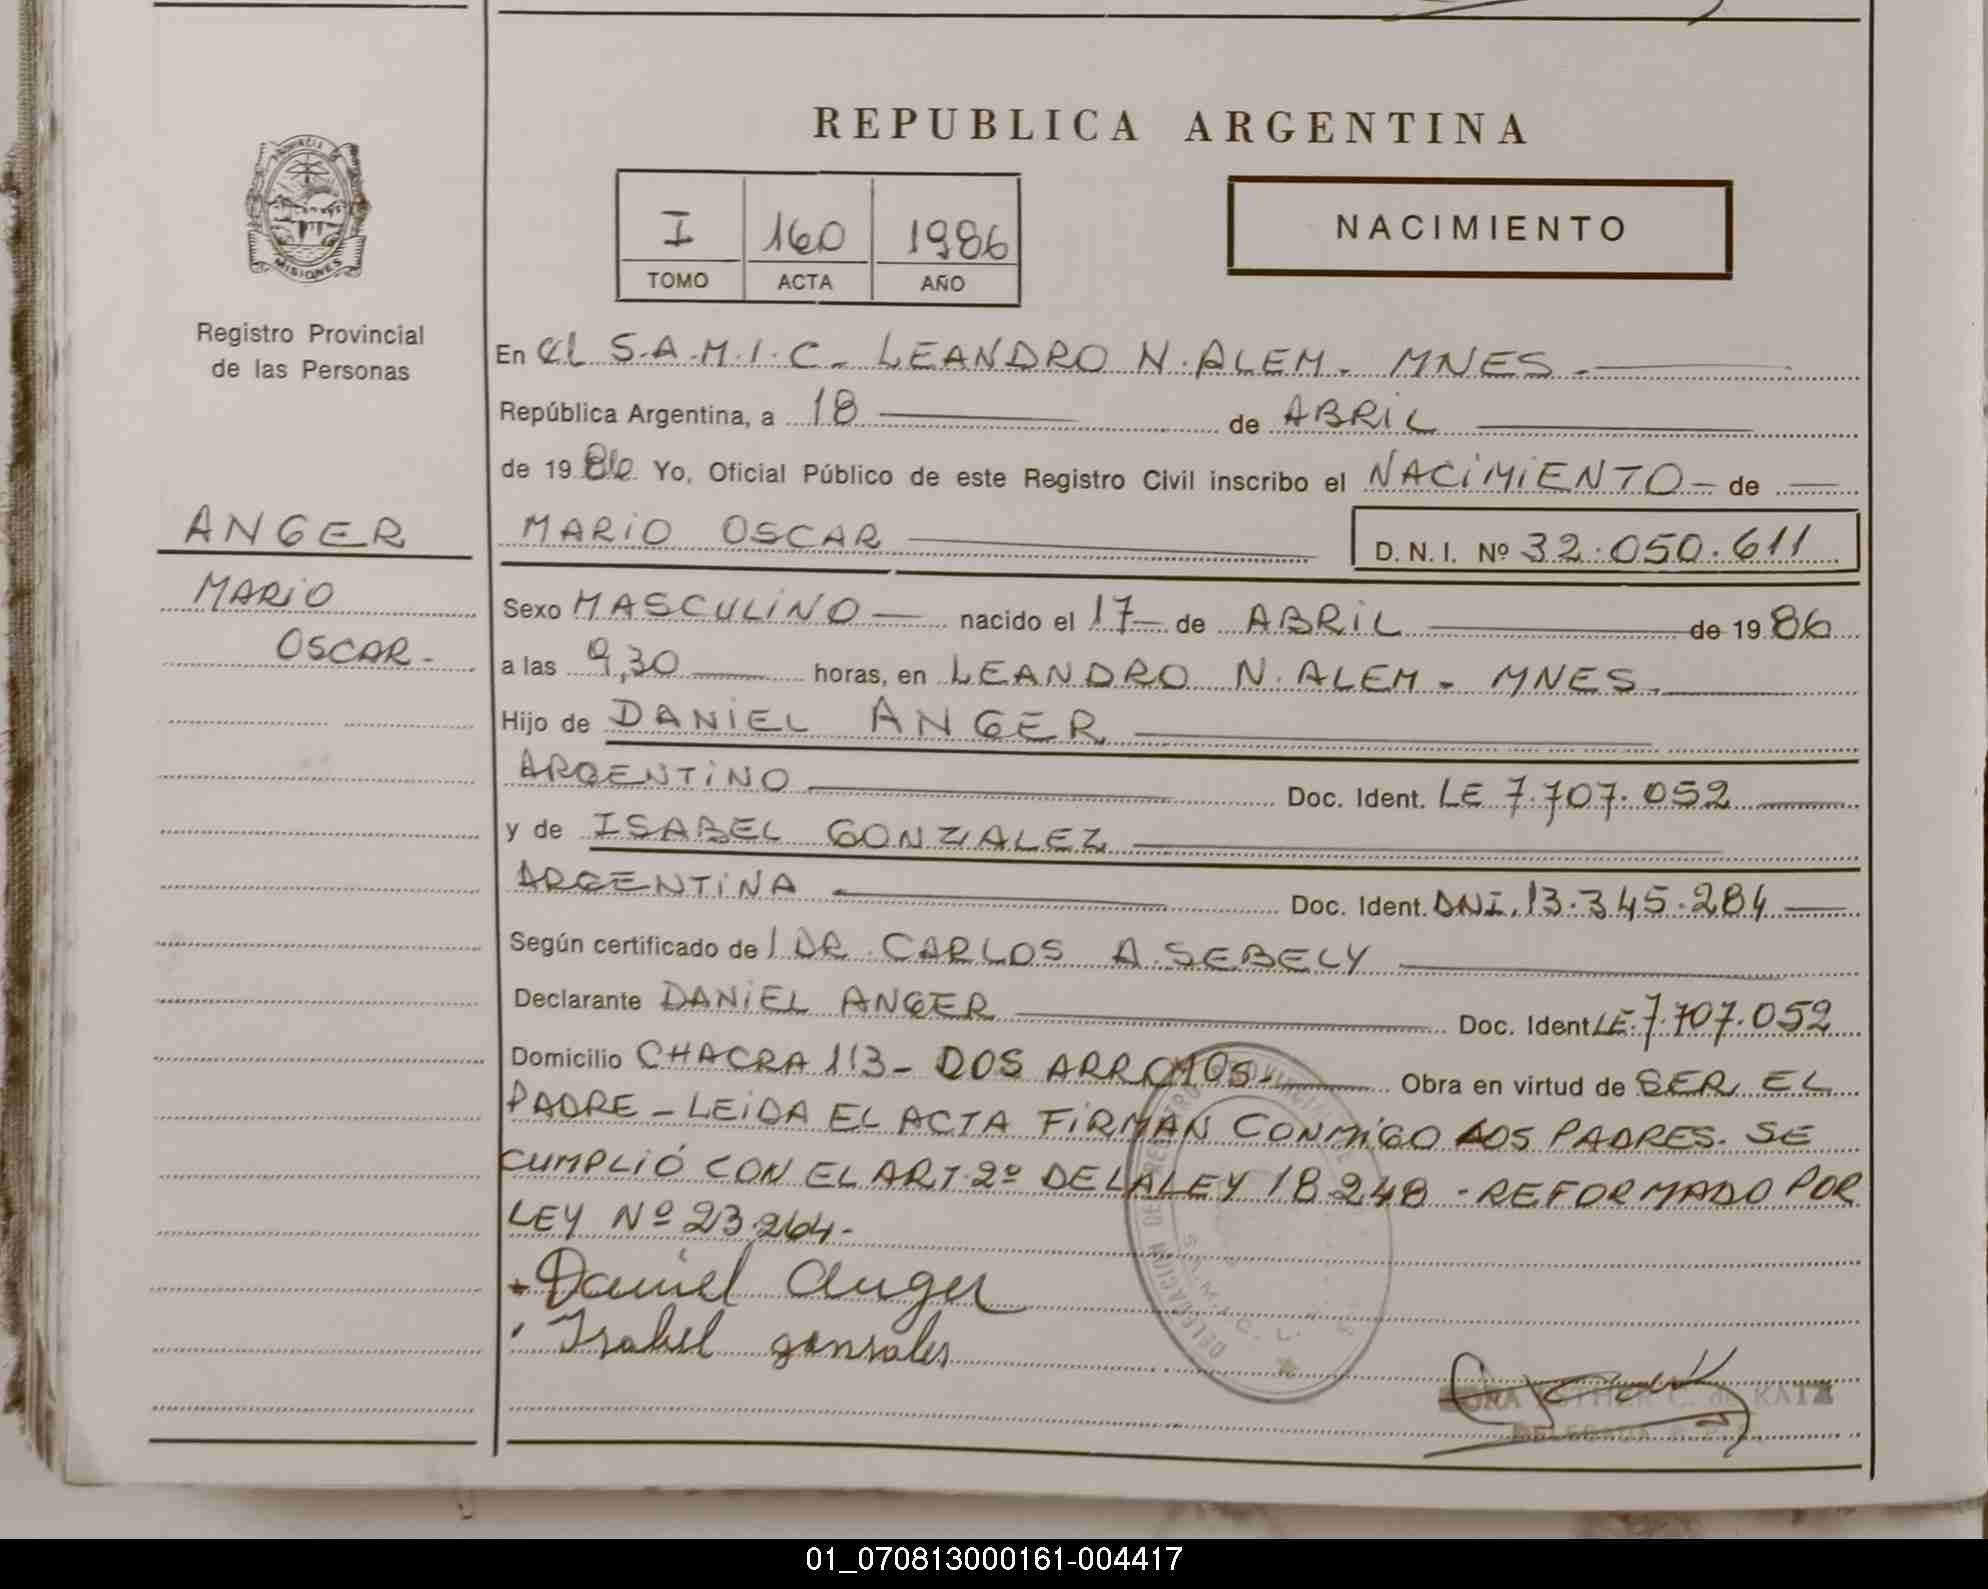 REPUBLICA ARGENTINA
PROVINCIA DE
MISIONES
Registro Provincial
de las Personas
I 160 1986
TOMO ACTA AÑO
NACIMIENTO
En el S.A.M.I.C- LEANDRO N. ALEM. MNES.
República Argentina, a 18 de ABRIL
de 1986 Yo, Oficial Público de este Registro Civil inscribo el NACIMIENTO - de
ANGER
MARIO
OSCAR-
MARIO OSCAR D.N.I. Nº 32.050.611
Sexo MASCULINO nacido el 17 de ABRIL de 1986
a las 9,30 horas, en LEANDRO N. ALEM - MNES.
Hijo de DANIEL ANGER
ARGENTINO Doc. Ident. LE 7.707.052
y de ISABEL GONZALEZ
ARGENTINA Doc. Ident. DNI. 13.345.284
Según certificado de l DR. CARLOS A. SEBELY
Declarante DANIEL ANGER Doc. Ident LE. 7.707.052
Domicilio CHACRA 113- DOS ARROYOS- Obra en virtud de SER EL
PADRE - LEIDA EL ACTA FIRMAN CONMIGO LOS PADRES. SE
CUMPLIÓ CON EL ART. 2º DE LA LEY 18.248 - REFORMADO POR
LEY Nº 23.264.-
Daniel Anger
Isabel gonsales
DELEGACION DEL REGISTRO PROVINCIAL
S.A.M.I.C. L.
ESTHER C. de KATZ
DELEGADA
01_070813000161-004417